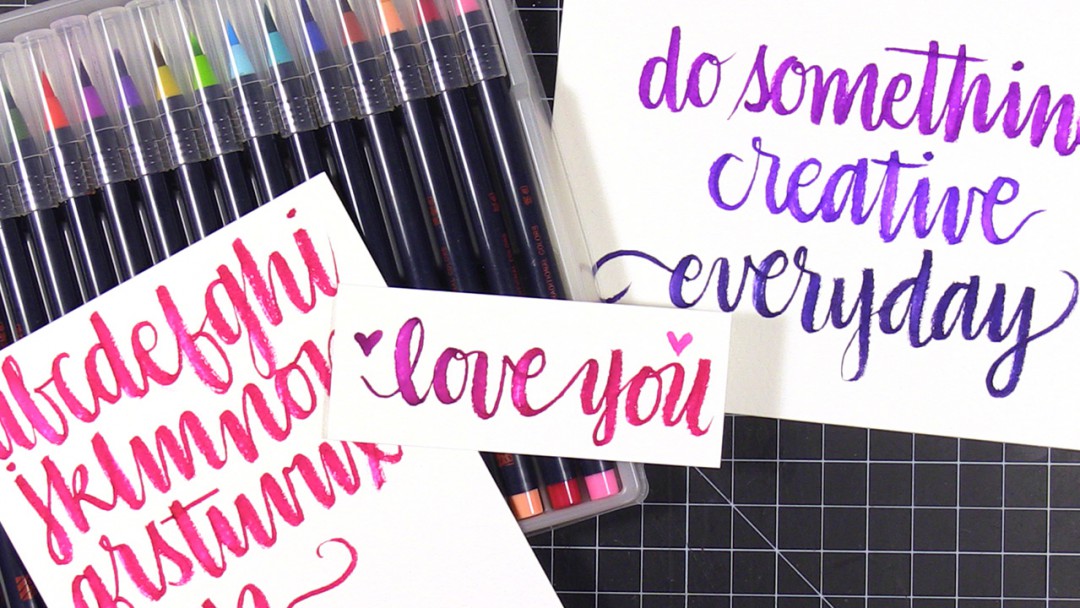 do somethin
creative
everyday
love you
abcdefghi
jklmno
qrstuvw